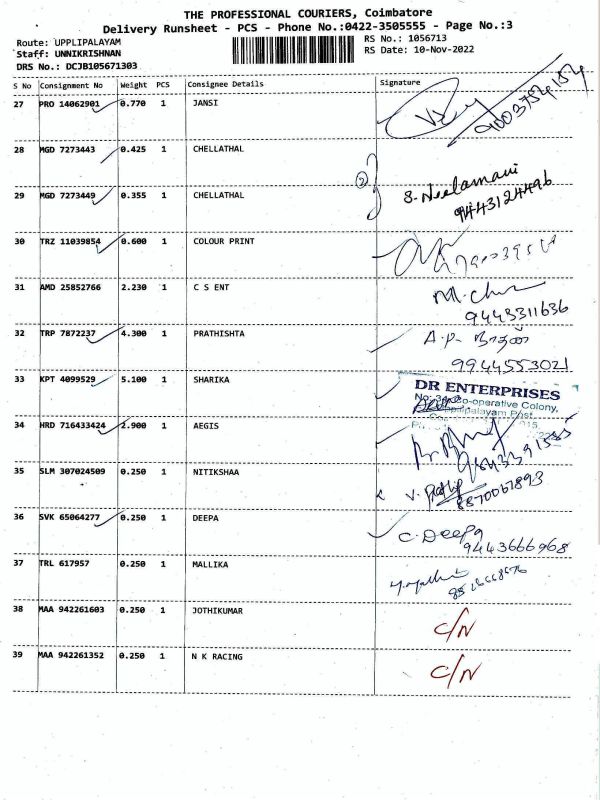 THE PROFESSIONAL COURIERS, Coimbatore
Delivery Runsheet - PCS - Phone No.:0422-3505555 - Page No.:3
Route: UPPLIPALAYAM RS No.: 1056713
Staff: UNNIKRISHNAN RS Date: 10-Nov-2022
DRS No.: DCJB105671303
S No Consignment No Weight PCS Consignee Details Signature
27 PRO 14062901 0.770 1 JANSI
28 MGD 7273443 0.425 1 CHELLATHAL
29 MGD 7273449 0.355 1 CHELLATHAL S. Neelamani
9443124496
30 TRZ 11039854 0.600 1 COLOUR PRINT
31 AMD 25852766 2.230 1 C S ENT
9443311636
32 TRP 7872237 4.300 1 PRATHISHTA A.P.
9944553021
33 KPT 4099529 5.100 1 SHARIKA DR ENTERPRISES
Co-operative Colony,
34 HRD 716433424 2.900 1 AEGIS
35 SLM 307024509 0.250 1 NITIKSHAA
8870067893
36 SVK 65064277 0.250 1 DEEPA C. Deepa
9443666968
37 TRL 617957 0.250 1 MALLIKA
38 MAA 942261603 0.250 1 JOTHIKUMAR C/N
39 MAA 942261352 0.250 1 N K RACING C/N